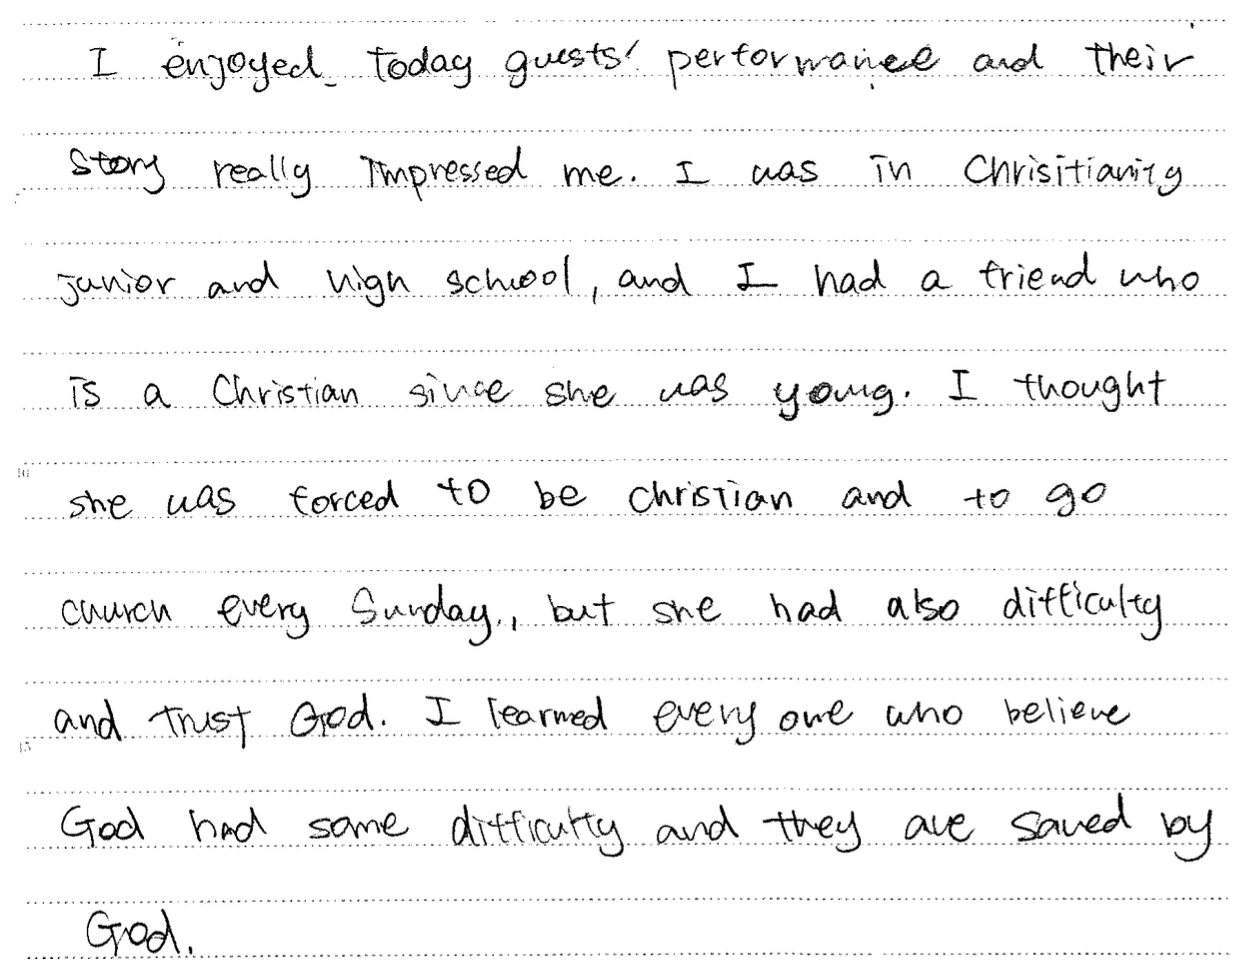 I enjoyed today guests' performance and their
story really impressed me. I was in Chrisitianity
junior and high school, and I had a friend who
is a Christian since she was young. I thought
she was forced to be christian and to go
church every Sunday, but she had also difficulty
and trust God. I learned every one who believe
God had some difficulty and they are saved by
God.